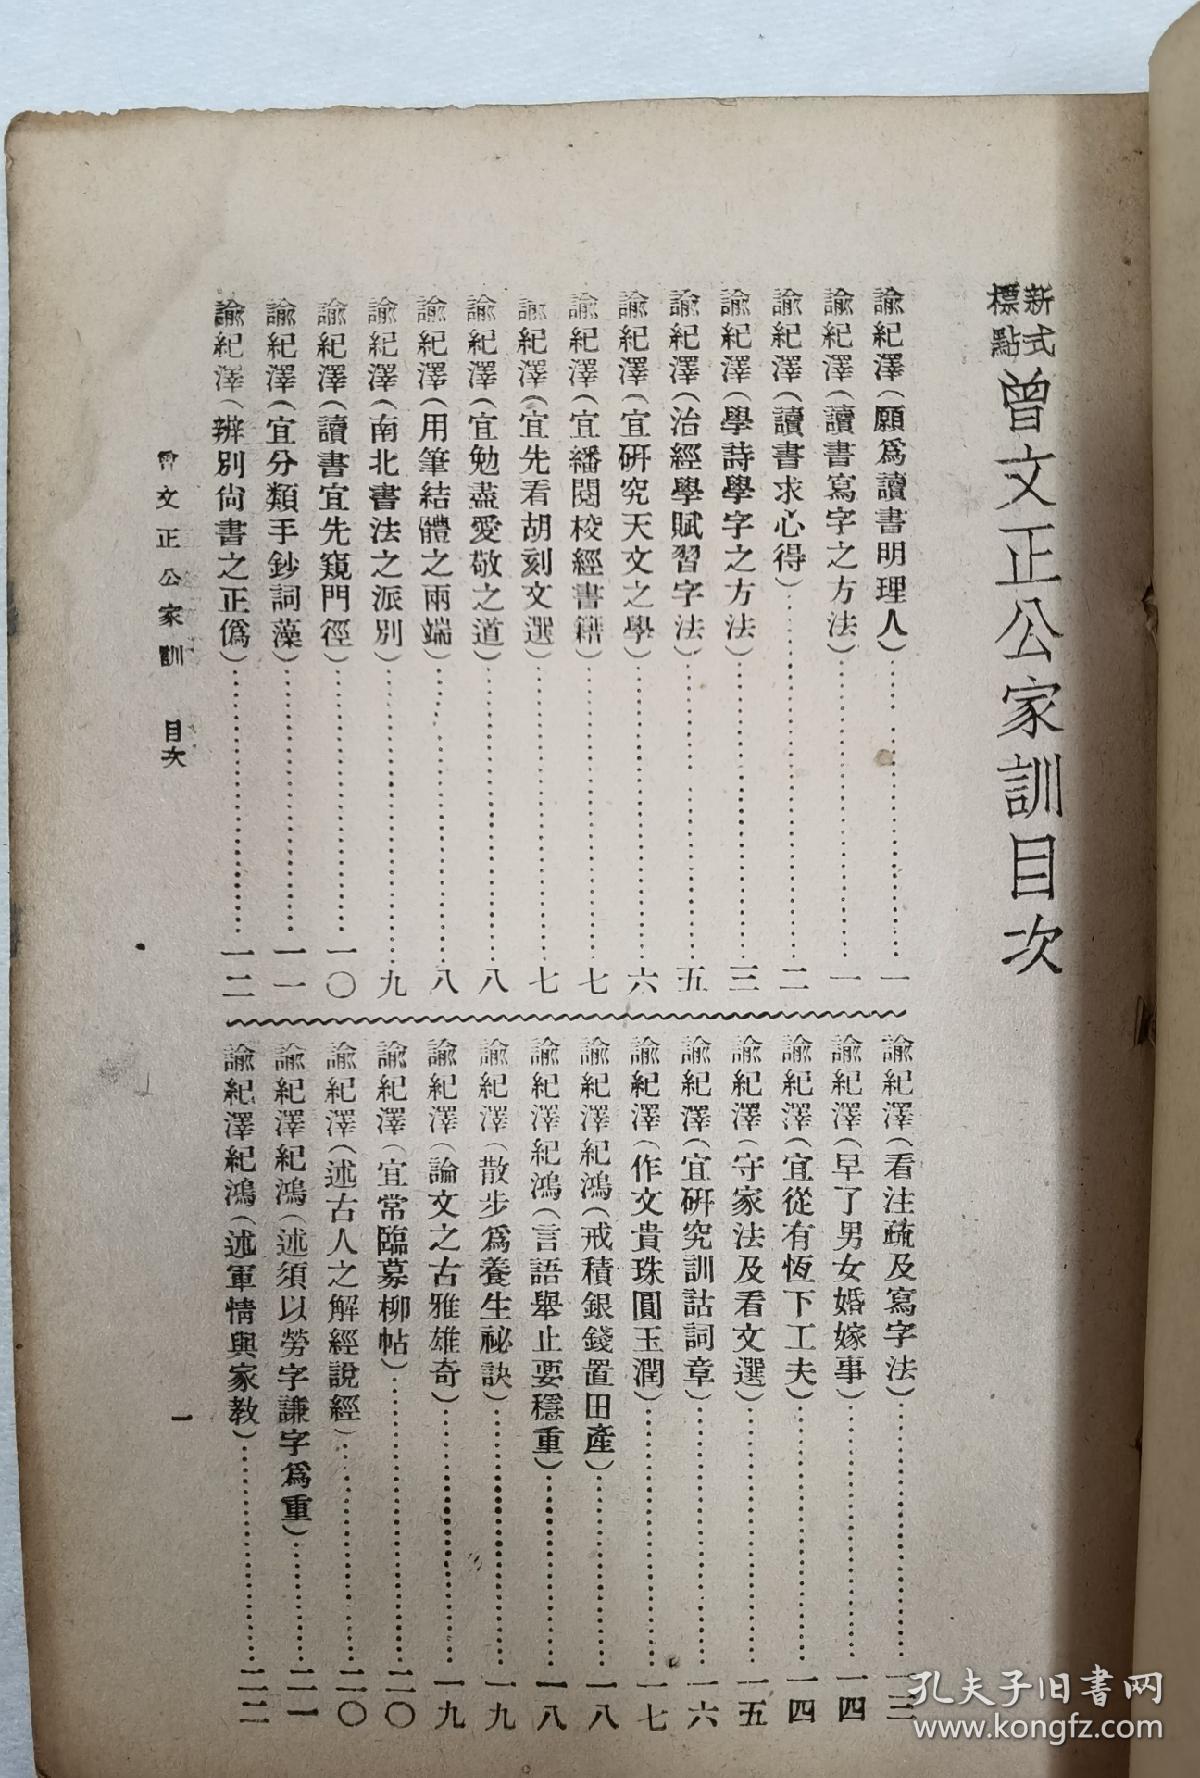 新式標點曾文正公家訓目次
諭紀澤（願爲讀書明理人）……一
諭紀澤（讀書寫字之方法）……一
諭紀澤（讀書求心得）……二
諭紀澤（學詩學字之方法）……三
諭紀澤（治經學賦習字法）……五
諭紀澤（宜硏究天文之學）……六
諭紀澤（宜繙閱校經書籍）……七
諭紀澤（宜先看胡刻文選）……七
諭紀澤（宜勉盡愛敬之道）……八
諭紀澤（用筆結體之兩端）……八
諭紀澤（南北書法之派別）……九
諭紀澤（讀書宜先窺門徑）……一〇
諭紀澤（宜分類手鈔詞藻）……一一
諭紀澤（辨別尙書之正僞）……一二
諭紀澤（看注疏及寫字法）……一三
諭紀澤（早了男女婚嫁事）……一四
諭紀澤（宜從有恆下工夫）……一四
諭紀澤（守家法及看文選）……一五
諭紀澤（宜硏究訓詁詞章）……一六
諭紀澤（作文貴珠圓玉潤）……一七
諭紀澤紀鴻（戒積銀錢置田產）……一八
諭紀澤紀鴻（言語舉止要穩重）……一八
諭紀澤（散步爲養生祕訣）……一九
諭紀澤（論文之古雅雄奇）……一九
諭紀澤（宜常臨摹柳帖）……二〇
諭紀澤（述古人之解經說經）……二〇
諭紀澤紀鴻（述須以勞字謙字爲重）……二一
諭紀澤紀鴻（述軍情與家教）……二二
曾文正公家訓 目次
一
孔夫子旧书网
www.kongfz.com